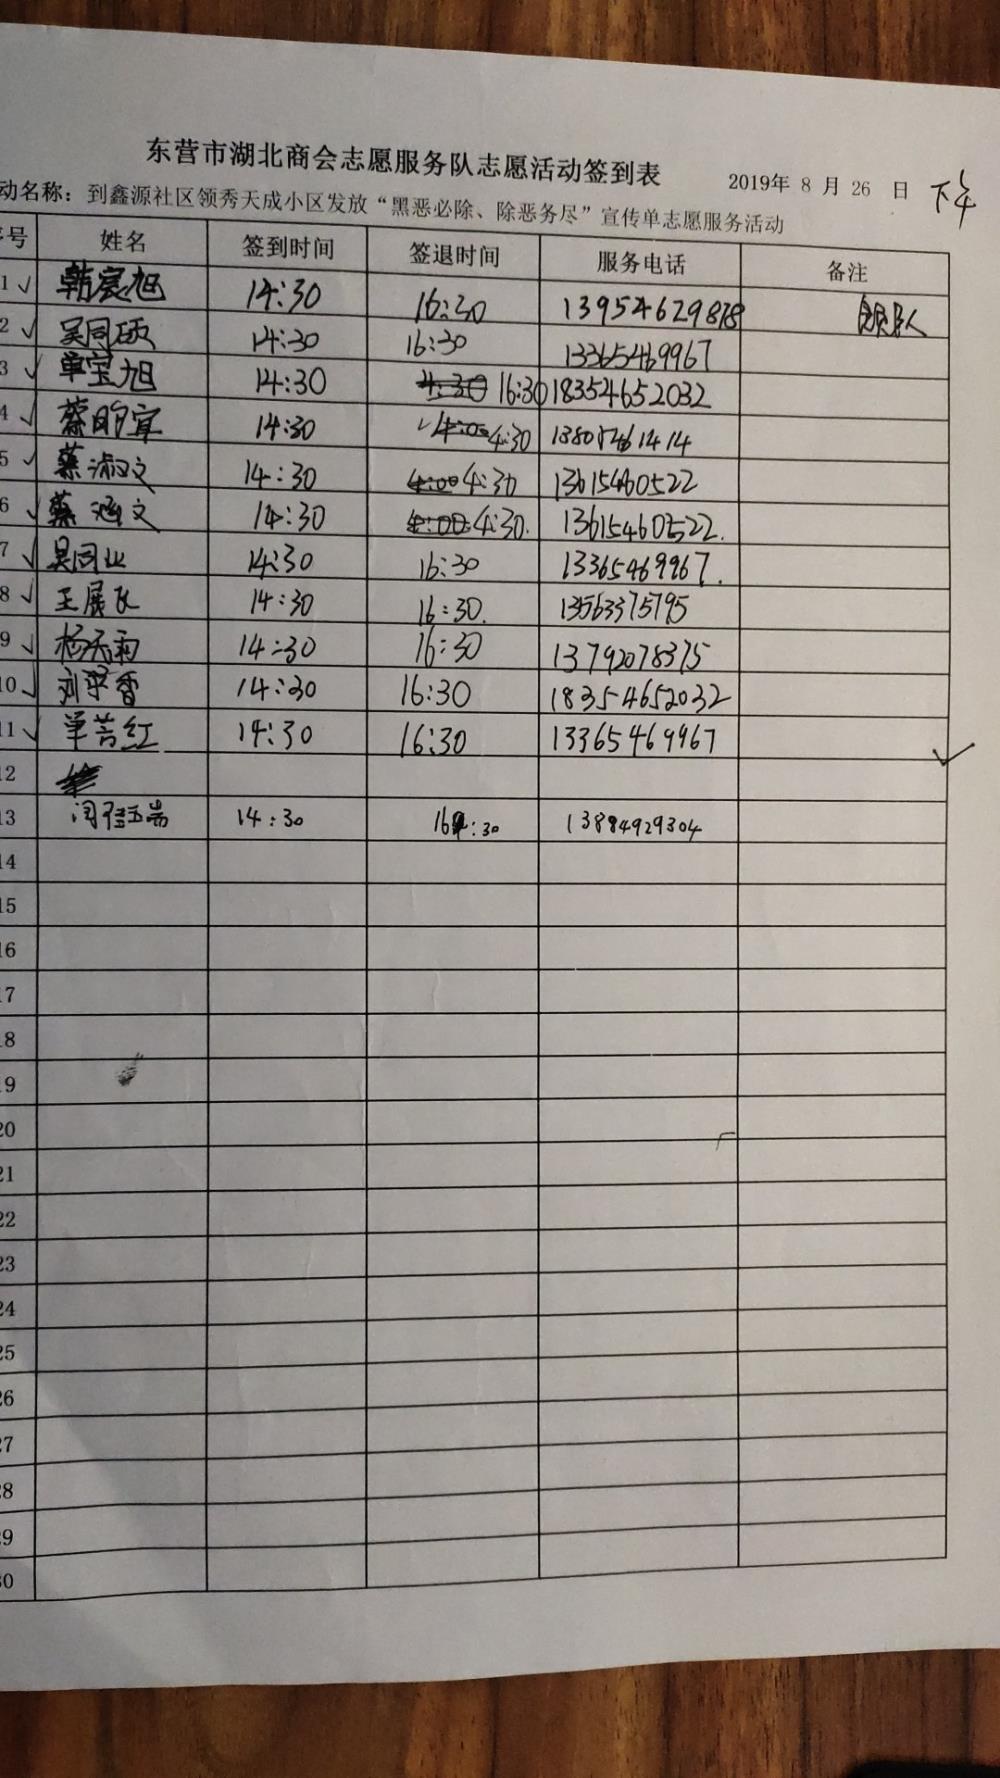 东营市湖北商会志愿服务队志愿活动签到表
2019年 8 月 26 日 下午
动名称：到鑫源社区领秀天成小区发放“黑恶必除、除恶务尽”宣传单志愿服务活动
序号 姓名 签到时间 签退时间 服务电话 备注
1 韩宸旭 14:30 16:30 13954629878
2 吴同硕 14:30 16:30 13365469967
3 单宝旭 14:30 16:30 18354652032
4 蔡昀宜 14:30 4:30 13805461414
5 蔡淑文 14:30 4:30 13615460522
6 蔡涵文 14:30 4:30. 13615460522.
7 吴同业 14:30 16:30 13365469967.
8 王展飞 14:30 16:30. 13563375795
9 杨天雨 14:30 16:30 13792078375
10 刘翠香 14:30 16:30 18354652032
11 单苦红 14:30 16:30 13365469967
12
13 14:30 16:30 13884929304
14
15
16
17
18
19
20
21
22
23
24
25
26
27
28
29
30